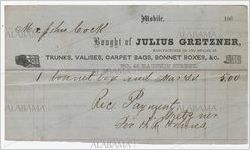 Mobile, 186
Mr John Cock
Bought of JULIUS GRETZNER,
MANUFACTURER OF AND DEALER IN
TRUNKS, VALISES, CARPET BAGS, BONNET BOXES, &c.
No. DAUPHIN STREET.
1 bonnet box and 5.00
Rec Payment
J Gretzner
For
ALABAMA